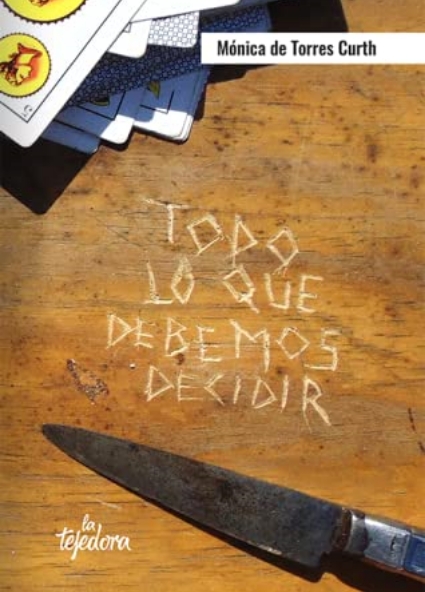 Mónica de Torres Curth
TODO
LO QUE
DEBEMOS
DECIDIR
la
tejedora